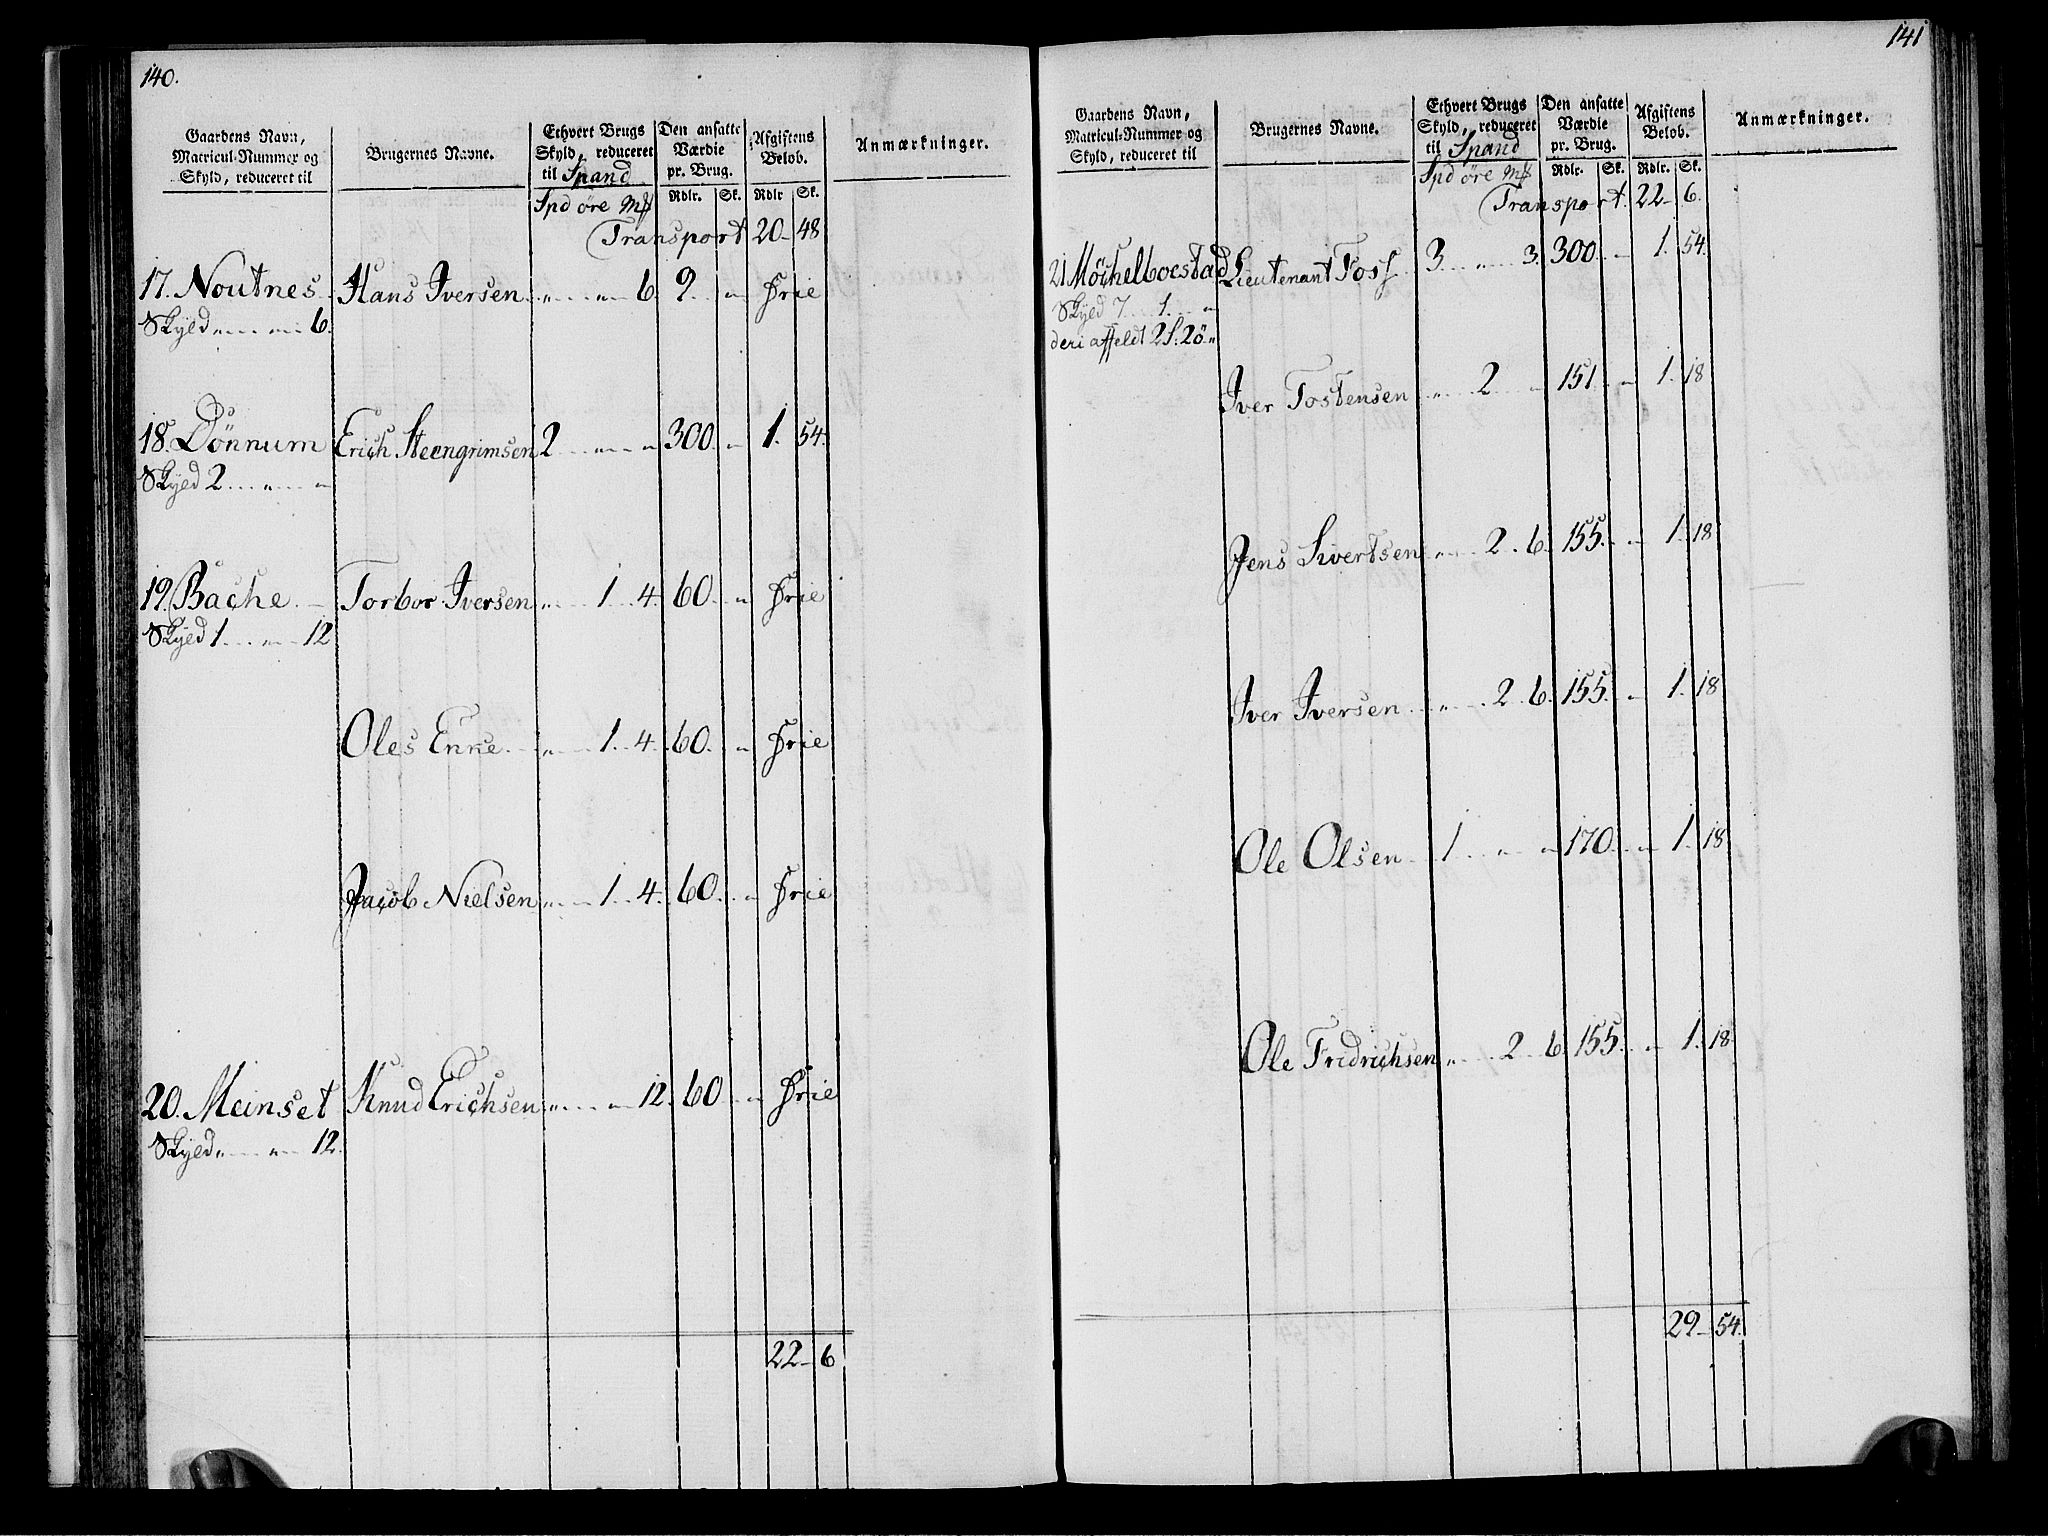 140.
Gaardens Navn, Matricul-Nummer og Skyld, reduceret til
Brugernes Navne.
Ethvert Brugs Skyld, reduceret til Spand
Den ansatte Værdie pr. Brug.
Afgiftens Beløb.
Anmærkninger.
Spd øre Mſ Rdlr. Sk. Rdlr Sk.
Transport 20 - 48
17. Noutnes Hans Iversen „ „ 6. 9. „ Frie
Skyld „ „ 6.
18. Dönnum Erich Steengrimsen 2 „ „ 300. „ 1. 54.
Skyld 2 „ „
19. Bache. Torbor Iversen „ 1. 4. 60. „ Frie
Skyld 1 „ 12
Oles Enke „ 1. 4. 60. „ Frie
Jacob Nielsen „ 1. 4. 60. „ Frie
20. Meinset Knud Erichsen „ „ 12. 60 „ Frie
Skyld „ „ 12.
22 - 6
141
Gaardens Navn, Matricul-Nummer og Skyld, reduceret til
Brugernes Navne.
Ethvert Brugs Skyld, reduceret til Spand
Den ansatte Værdie pr. Brug.
Afgiftens Beløb.
Anmærkninger.
Spd øre Mſ Rdlr. Sk. Rdlr. Sk.
Transport. 22 - 6.
21. Möchelboestad Lieutenant Foss 3 „ 3. 300. „ 1. 54.
Skyld 7. 1. „
deri affeldt 2 S. 2ö „
Iver Tostensen „ 2 „ 151. „ 1. 18
Jens Sivertsen „ 2. 6. 155. „ 1. 18
Iver Iversen „ 2. 6. 155. „ 1. 18
Ole Olsen 1 „ „ 170. „ 1. 18
Ole Fridrichsen „ 2 6. 155. „ 1. 18.
29 - 54.